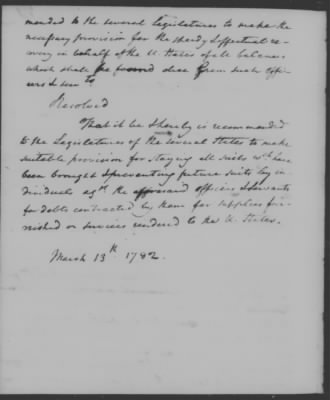 mended to the several Legislatures to make the
necessary provision for the speedy & effectual re-
covery in behalf of the U. States of all balances
which shall be found due from such offi-
cers &
Resolved
That it be & hereby is recommended
to the Legislatures of the several States to make
suitable provision for staying all suits wch have
been brought & preventing future suits by in-
dividuals agst the aforesaid officers & servants
for debts contracted by them for supplies fur-
nished or services rendered to the U. States.
March 13th 1782.